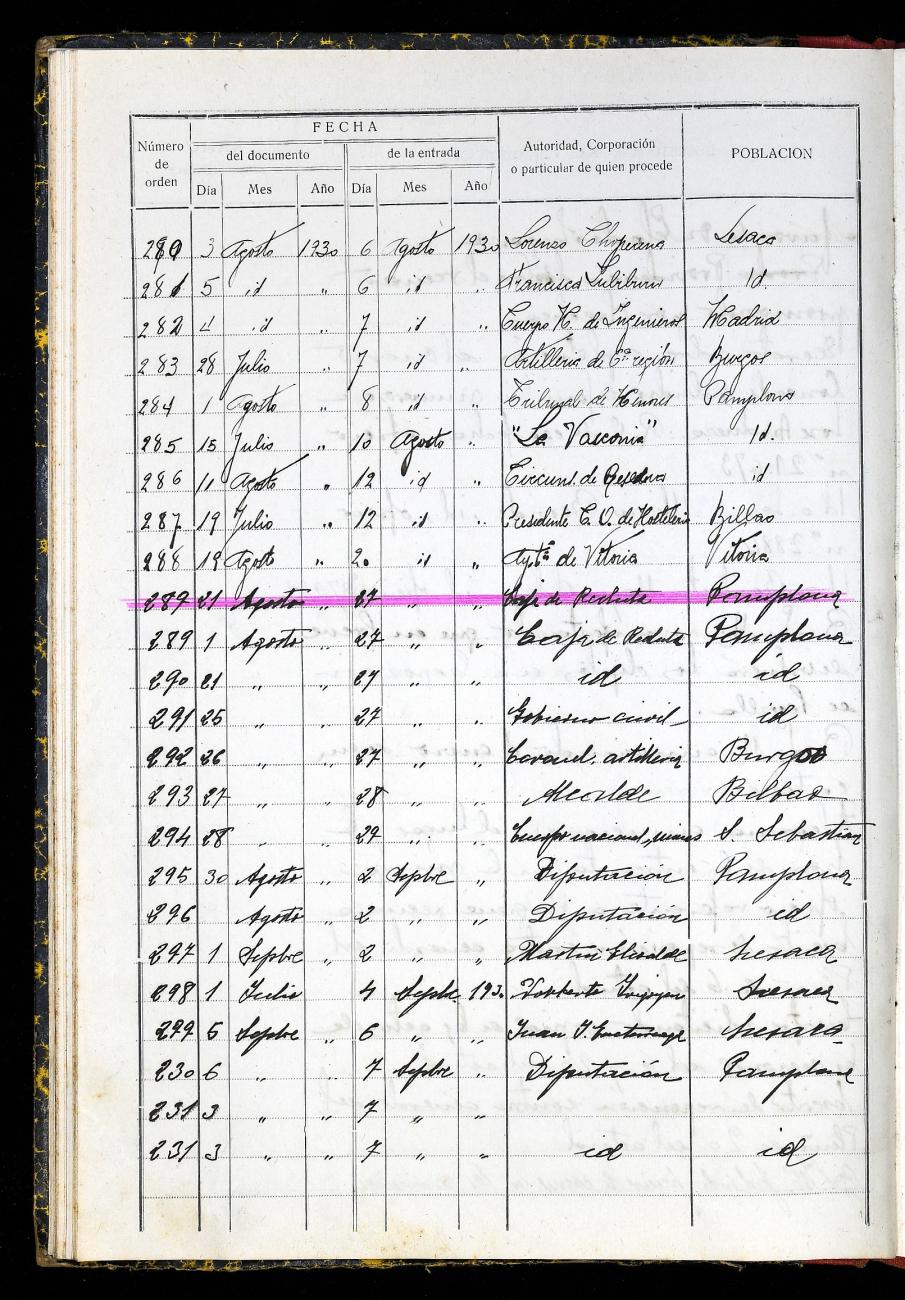 FECHA
Número de orden del documento de la entrada Autoridad, Corporación o particular de quien procede POBLACION
Día Mes Año Día Mes Año
280 3 Agosto 1930 6 Agosto 1930 Lorenzo Lesaca
281 5 id " 6 id " Francisca Id.
282 4 id " 7 id " Cuerpo N. de Ingenieros Madrid
283 28 Julio " 7 id " Artilleria de región Burgos
284 1 Agosto " 8 id " Tribunal de Menores Pamplona
285 15 Julio " 10 Agosto " "La Vasconia" Id.
286 11 Agosto " 12 id " Circuns. de Reserva id
287 19 Julio " 12 id " Presidente C. O. de Hosteleria Bilbao
288 19 Agosto " 20 id " Aytº de Vitoria Vitoria
289 21 Agosto " 27 " " Caja de Recluta Pamplona
289 1 Agosto " 27 " " Caja de Recluta Pamplona
290 21 " " 27 " " id id
291 25 " " 27 " " Gobierno civil id
292 26 " " 27 " " Coronel artilleria Burgos
293 27 " " 28 " " Alcalde Bilbao
294 28 " " 29 " " Cuerpo nacional, minas S. Sebastian
295 30 Agosto " 2 Sepbre " Diputación Pamplona
296 Agosto " 2 " " Diputación id
297 1 Sepbre " 2 " " Martin Elizalde Lesaca
298 1 Julio 4 Sepbre 1930 Norberto Irigoyen Lesaca
299 5 Sepbre " 6 " " Juan J. Lesaca
230 6 " " 7 Sepbre " Diputación Pamplona
231 3 " " 7 " "
231 3 " " 7 " " id id